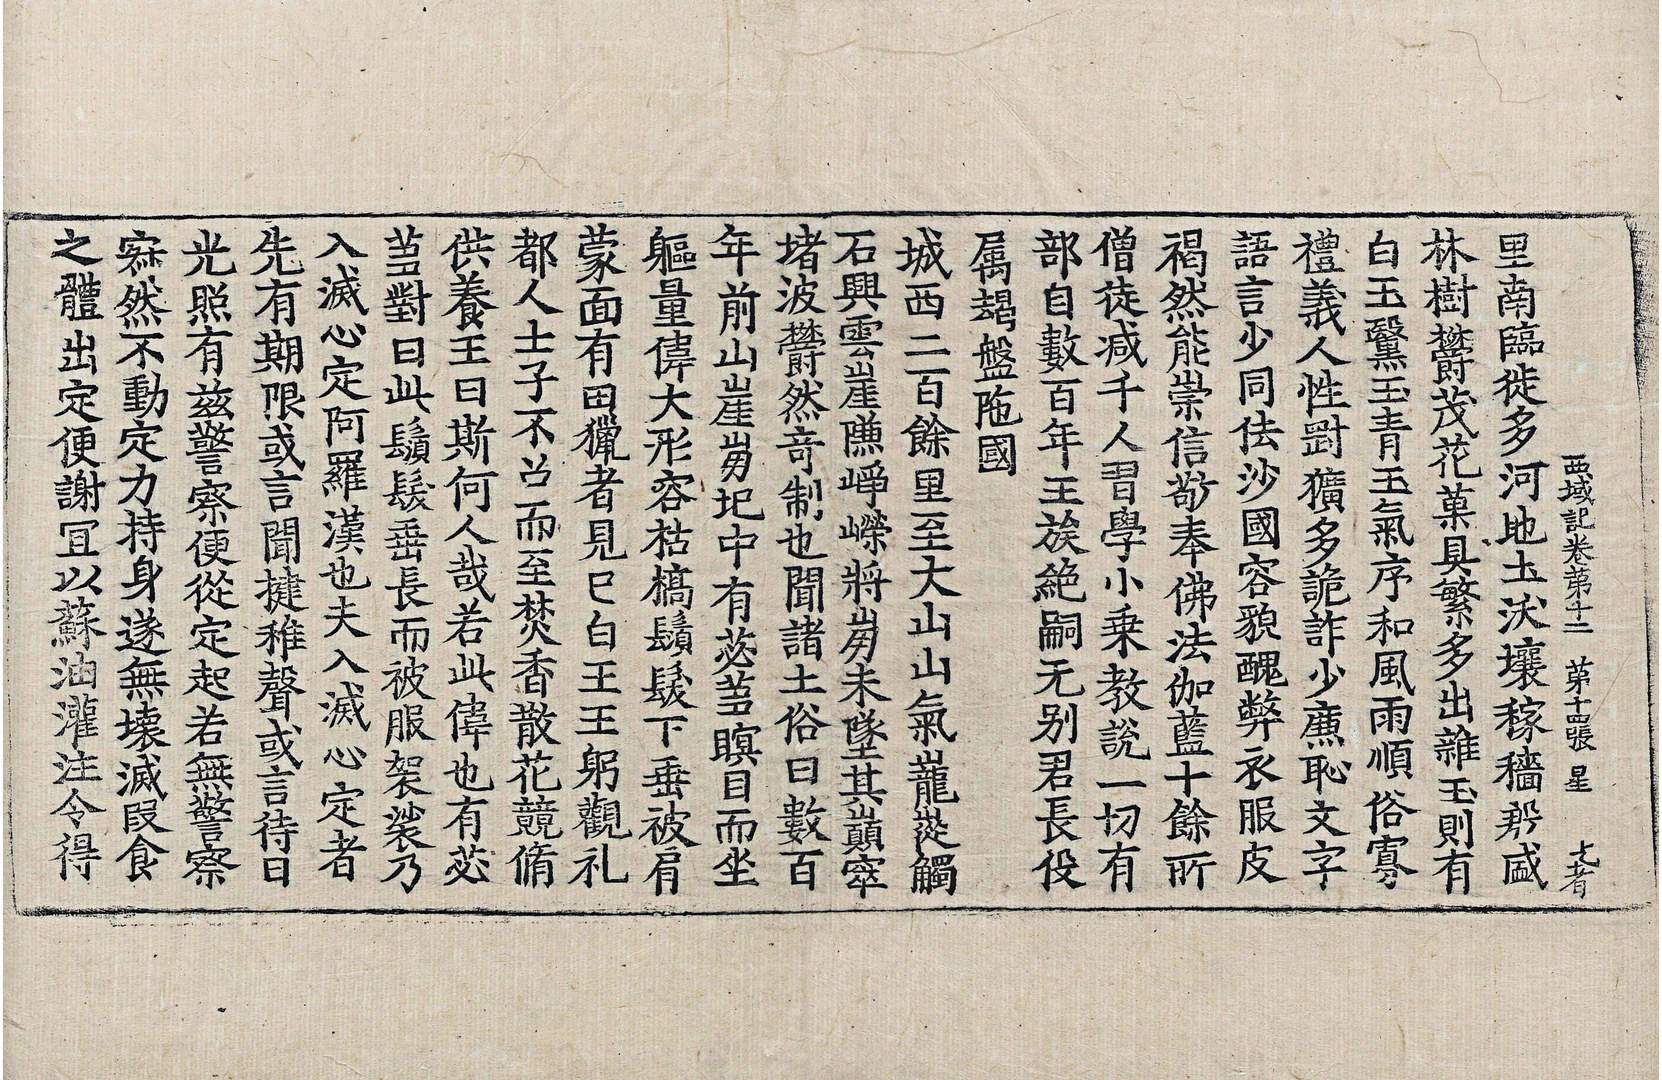 西域記卷苐十二 苐十四張 星
里南臨徙多河地土沃壤稼穡殷盛
林樹欝茂花菓具繁多出雜玉則有
白玉黳玉青玉氣序和風雨順俗寡
禮義人性剛獷多詭詐少廉恥文字
語言少同佉沙國容貌醜弊衣服皮
褐然能崇信敬奉佛法伽藍十餘所
僧徒减千人習學小乗教說一切有
部自數百年王族絶嗣无别君長役
属朅盤陁國
城西二百餘里至大山山氣巃嵸觸
石興雲崖隒崢嶸將崩未墜其巔窣
堵波欝然竒制也聞諸土俗曰數百
年前山崖崩圮中有苾蒭瞑目而坐
軀量偉大形容枯槁鬚髮下垂被肩
蒙面有田獵者見已白王王躬觀礼
都人士子不召而至焚香散花競脩
供養王曰斯何人哉若此偉也有苾
蒭對曰此鬚髮垂長而被服袈裟乃
入滅心定阿羅漢也夫入滅心定者
先有期限或言聞揵稚聲或言待日
光照有兹警察便從定起若無警察
寂然不動定力持身遂無壞滅段食
之體出定便謝冝以蘇油灌注令得